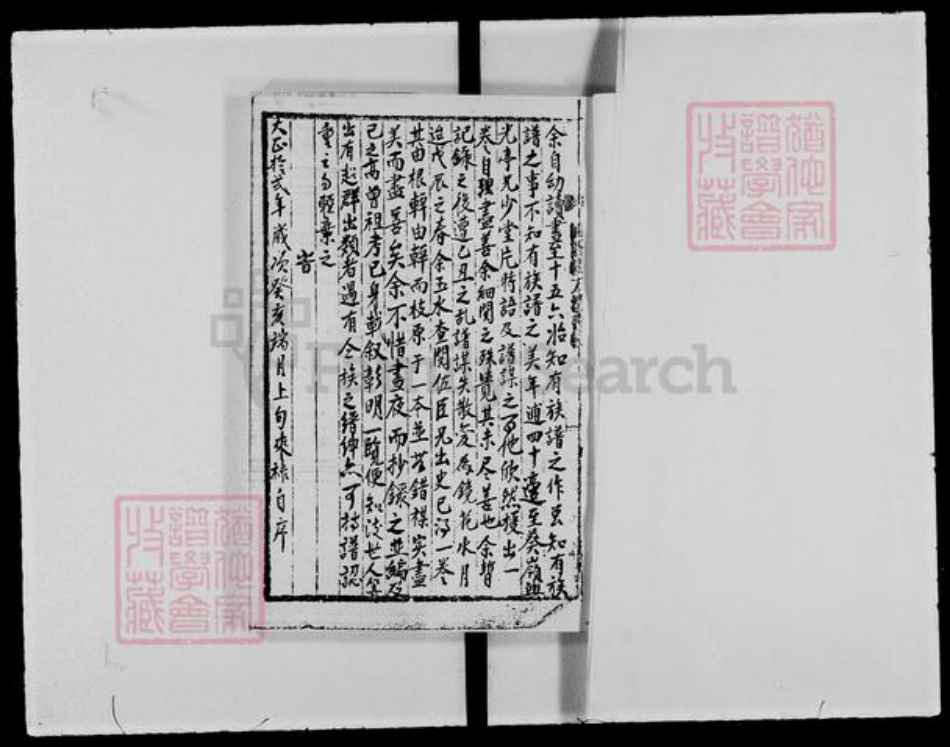 余自幼讀書至十五六始知有族譜之作豈知有族
譜之事不知有族譜之美年逋四十遷至癸嶺與
光亭兄少堂片時語及譜諜之可他欣然援出一
卷自理盡善余細閱之殊覺其未尽善也余暫
記錄之後遭乙丑之乱譜諜失散変為鏡花水月
迨戊辰之春余玉水查閱佐臣兄出史已得一卷
其由根幹由幹而枝原于一本並無錯襍实盡
美而盡善矣余不惜晝夜而抄錄之並編及
己之高曾祖考已身載叙彰明一覽便知後世人等
出有超群出類者過有仝族之縉紳亦可持譜認
重之勿輕棄之
旹
大正拾弍年歲次癸亥端月上旬來祿自序
猶他家
譜學會
收藏
猶他家
譜學會
收藏
FamilySearch